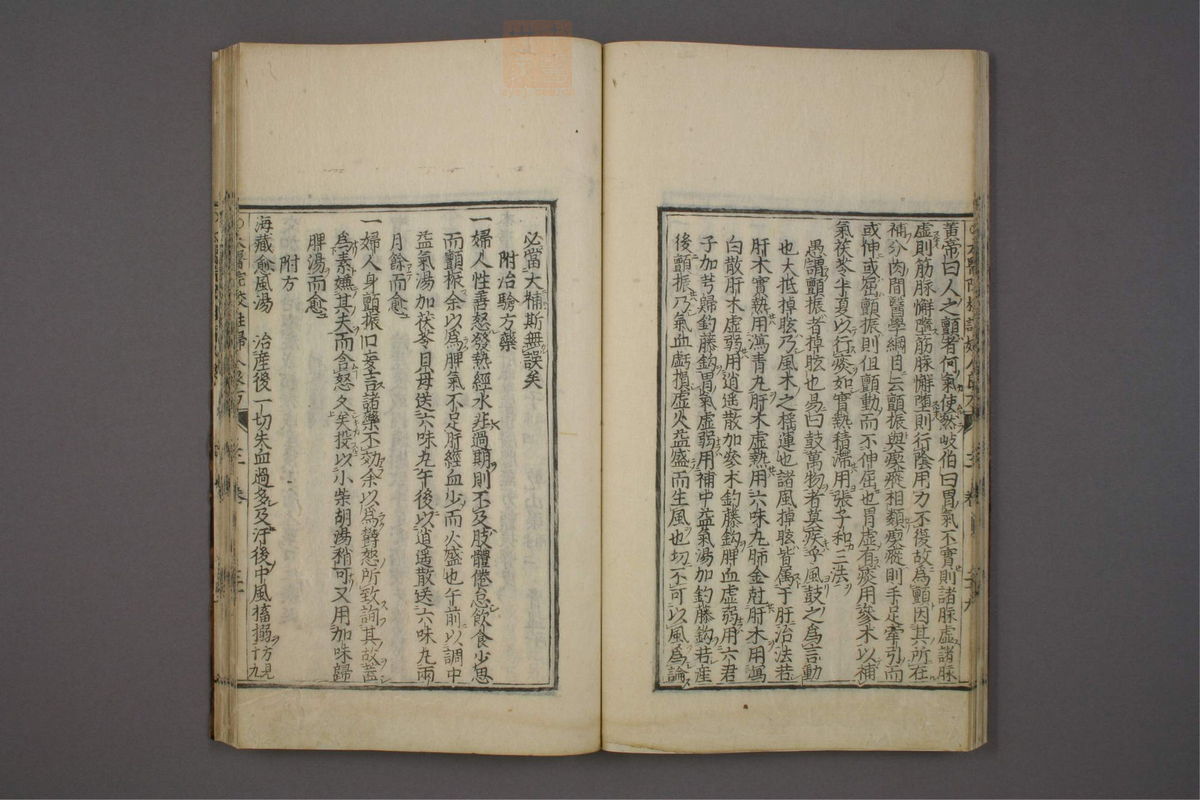 黃帝曰人之顫者何氣使然岐伯曰胃氣不實則諸脉虛諸脉
虛則筋脉懈墮筋脉懈墮則行陰用力不復故爲顫因其所在
補分肉間醫學綱目云顫振與瘈瘲相類瘈瘲則手足牽引而
或伸或屈顫振則但顫動而不伸屈也胃虛有痰用參术以補
氣茯苓半夏以行痰如實熱積滯用張子和三法
愚謂顫振者掉眩也易曰鼓萬物者莫疾乎風鼓之爲言動
也大抵掉眩乃風木之摇運也諸風掉眩皆屬于肝治法若
肝木實熱用瀉青丸肝木虛熱用六味丸肺金尅肝木用瀉
白散肝木虛弱用逍遥散加參术釣藤鈎脾血虛弱用六君
子加芎歸釣藤鈎胃氣虛弱用補中益氣湯加釣藤鈎若産
後顫振乃氣血虧損虛火益盛而生風也切不可以風爲論
必當大補斯無誤矣
附治驗方藥
一婦人性善怒發熱經水非過期則不及肢體倦怠飲食少思
而顫振余以爲脾氣不足肝經血少而火盛也午前以調中
益氣湯加茯苓貝母送六味丸午後以逍遥散送六味丸兩
月餘而愈
一婦人身顫振口妄言諸藥不効余以爲欝怒所致詢其故蓋
爲素嫌其夫而含怒久矣投以小柴胡湯稍可又用加味歸
脾湯而愈
附方
海藏愈風湯　治産後一切失血過多及汗後中風搐搦方見